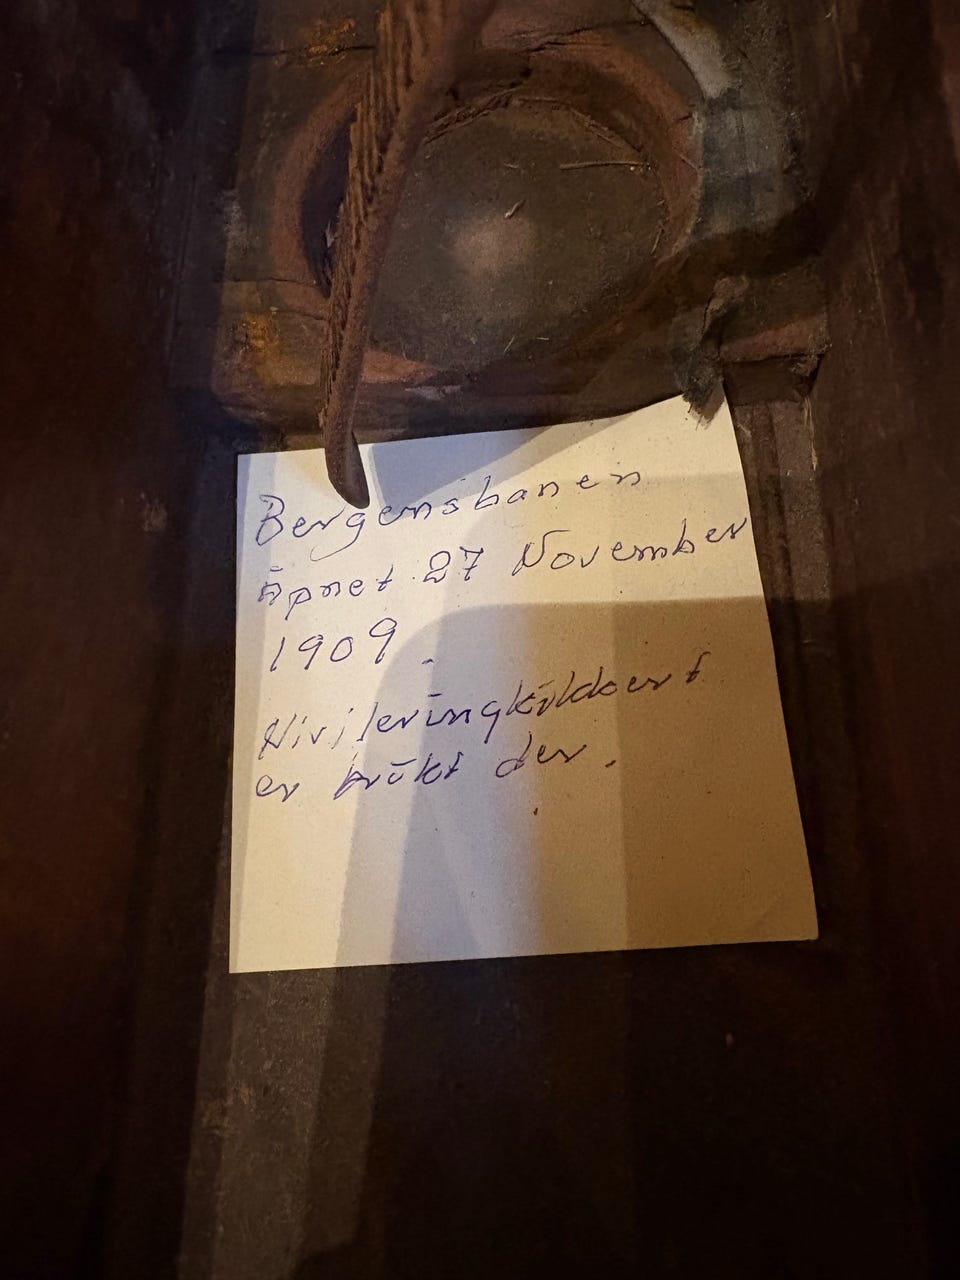 Bergensbanen
Åpnet 27 November
1909.
er brukt der.